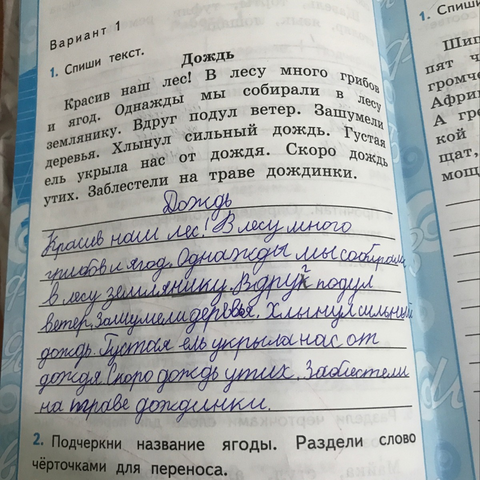 Вариант 1
1. Спиши текст.
Дождь
Красив наш лес! В лесу много грибов
и ягод. Однажды мы собирали в лесу
землянику. Вдруг подул ветер. Зашумели
деревья. Хлынул сильный дождь. Густая
ель укрыла нас от дождя. Скоро дождь
утих. Заблестели на траве дождинки.
Дождь
Красив наш лес! В лесу много
грибов и ягод. Однажды мы собирали
в лесу землянику. Вдруг подул
ветер. Зашумели деревья. Хлынул сильный
дождь. Густая ель укрыла нас от
дождя. Скоро дождь утих. Заблестели
на траве дождинки.
2. Подчеркни название ягоды. Раздели слово
чёрточками для переноса.
1. Спиши
Шип
пят ч
громче
Афри
А гре
кой
щат,
мощ